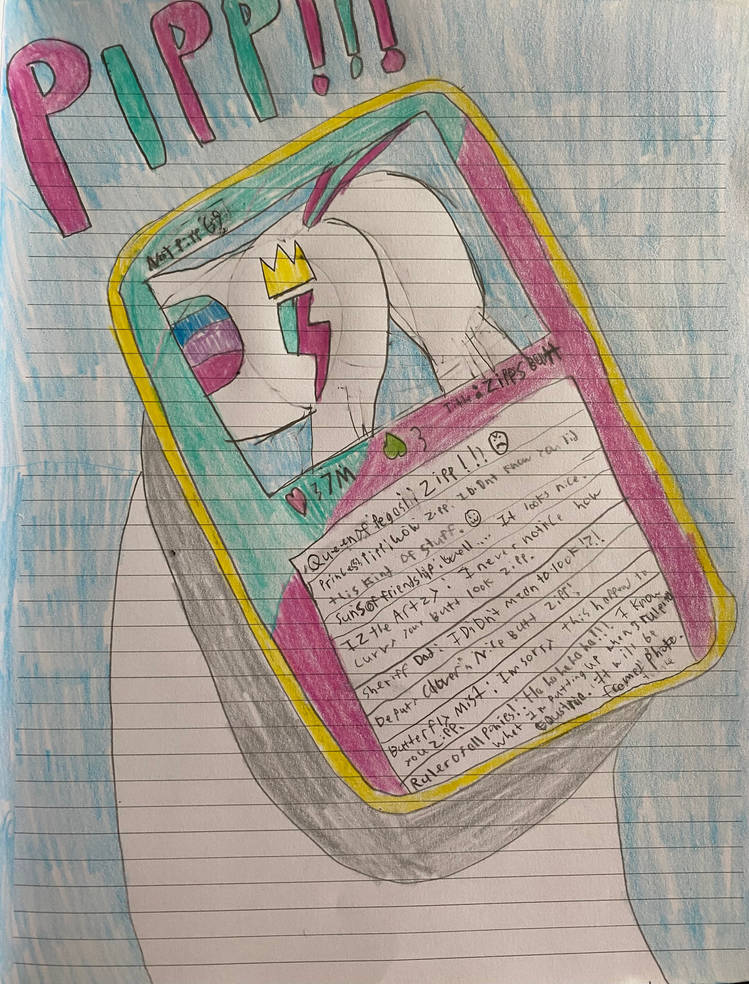 PIPP!!!
Not Pipp 69
Title: Zipps Butt
37M 3
Queen of Pegasi: Zipp!!!
Princess Pipp! Wow Zipp. I Didnt Know You Did
this Kind of Stuff.
Suns of friendship: Well... It looks nice.
IZ the Artzy: I never notice how
Curvy your Butt look Zipp.
Sheriff Dad: I Didn't mean to look!?!
Deputy Clover: Nice Butt Zipp!
Butterfly Mist: Im sorry this happend to
you Zipp.
Ruler of all Ponies: Ha ha ha ha ha!!! I Know
What Im putting up when I
It will be
framed Photo.